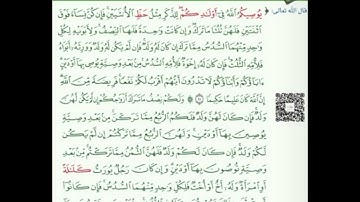 قال الله تعالى:
يُوصِيكُمُ ٱللَّهُ فِىٓ أَوْلَـٰدِكُمْ لِلذَّكَرِ مِثْلُ حَظِّ ٱلْأُنثَيَيْنِ فَإِن كُنَّ نِسَآءً فَوْقَ
ٱثْنَتَيْنِ فَلَهُنَّ ثُلُثَا مَا تَرَكَ وَإِن كَانَتْ وَٰحِدَةً فَلَهَا ٱلنِّصْفُ وَلِأَبَوَيْهِ لِكُلِّ
وَٰحِدٍ مِّنْهُمَا ٱلسُّدُسُ مِمَّا تَرَكَ إِن كَانَ لَهُۥ وَلَدٌ فَإِن لَّمْ يَكُن لَّهُۥ وَلَدٌ وَوَرِثَهُۥٓ أَبَوَاهُ
فَلِأُمِّهِ ٱلثُّلُثُ فَإِن كَانَ لَهُۥٓ إِخْوَةٌ فَلِأُمِّهِ ٱلسُّدُسُ مِنۢ بَعْدِ وَصِيَّةٍ يُوصِى بِهَآ أَوْ دَيْنٍ
ءَابَآؤُكُمْ وَأَبْنَآؤُكُمْ لَا تَدْرُونَ أَيُّهُمْ أَقْرَبُ لَكُمْ نَفْعًا فَرِيضَةً مِّنَ ٱللَّهِ
إِنَّ ٱللَّهَ كَانَ عَلِيمًا حَكِيمًا وَلَكُمْ نِصْفُ مَا تَرَكَ أَزْوَٰجُكُمْ إِن لَّمْ يَكُن لَّهُنَّ
وَلَدٌ فَإِن كَانَ لَهُنَّ وَلَدٌ فَلَكُمُ ٱلرُّبُعُ مِمَّا تَرَكْنَ مِنۢ بَعْدِ وَصِيَّةٍ
يُوصِينَ بِهَآ أَوْ دَيْنٍ وَلَهُنَّ ٱلرُّبُعُ مِمَّا تَرَكْتُمْ إِن لَّمْ يَكُن
لَّكُمْ وَلَدٌ فَإِن كَانَ لَكُمْ وَلَدٌ فَلَهُنَّ ٱلثُّمُنُ مِمَّا تَرَكْتُم مِّنۢ بَعْدِ
وَصِيَّةٍ تُوصُونَ بِهَآ أَوْ دَيْنٍ وَإِن كَانَ رَجُلٌ يُورَثُ كَلَـٰلَةً
أَوِ ٱمْرَأَةٌ وَلَهُۥٓ أَخٌ أَوْ أُخْتٌ فَلِكُلِّ وَٰحِدٍ مِّنْهُمَا ٱلسُّدُسُ فَإِن كَانُوٓا۟